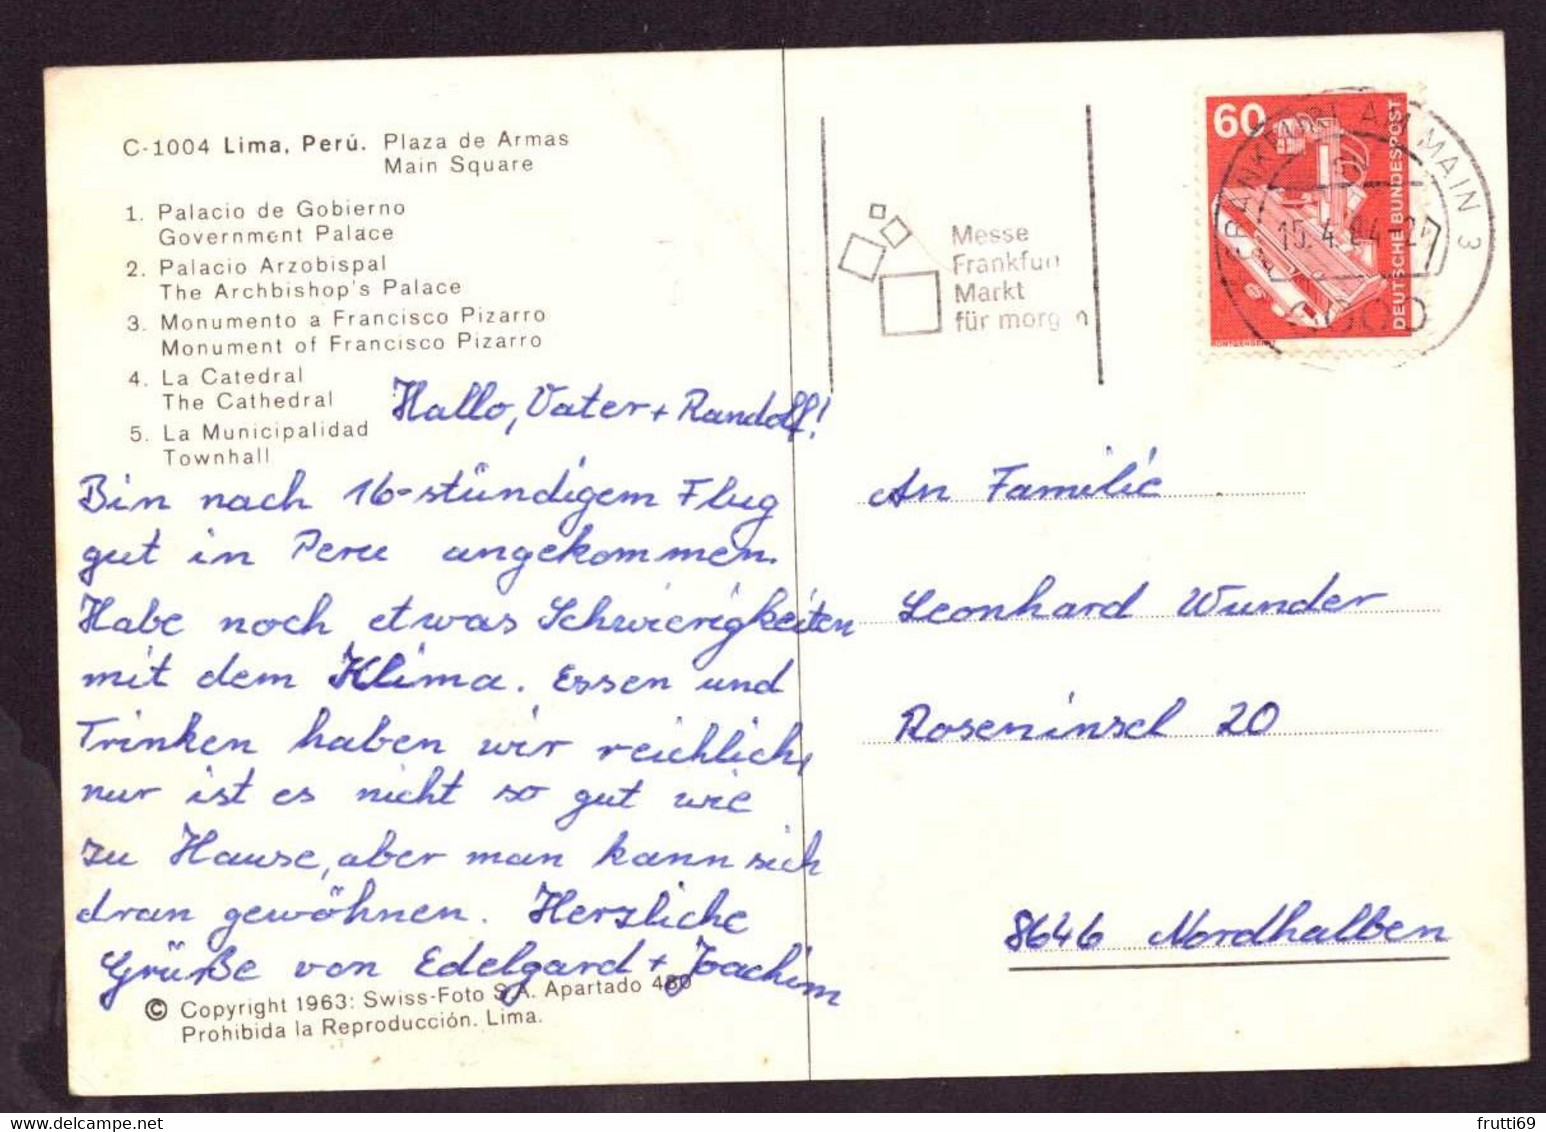 C-1004 Lima, Perú. Plaza de Armas
Main Square
1. Palacio de Gobierno
Government Palace
2. Palacio Arzobispal
The Archbishop's Palace
3. Monumento a Francisco Pizarro
Monument of Francisco Pizarro
4. La Catedral
The Cathedral
5. La Municipalidad
Townhall
Hallo, Vater + Randolf!
Bin nach 16-stündigem Flug
gut in Peru angekommen.
Habe noch etwas Schwierigkeiten
mit dem Klima. Essen und
Trinken haben wir reichlich,
nur ist es nicht so gut wie
zu Hause, aber man kann sich
dran gewöhnen. Herzliche
Grüße von Edelgard + Joachim
© Copyright 1963: Swiss-Foto S.A. Apartado 480
Prohibida la Reproducción. Lima.
Messe
Frankfurt
Markt
für morgen
60
DEUTSCHE BUNDESPOST
FRANKFURT AM MAIN 3
15.4.84-21
6000
An Familie
Leonhard Wunder
Roseninsel 20
8646 Nordhalben
frutti69